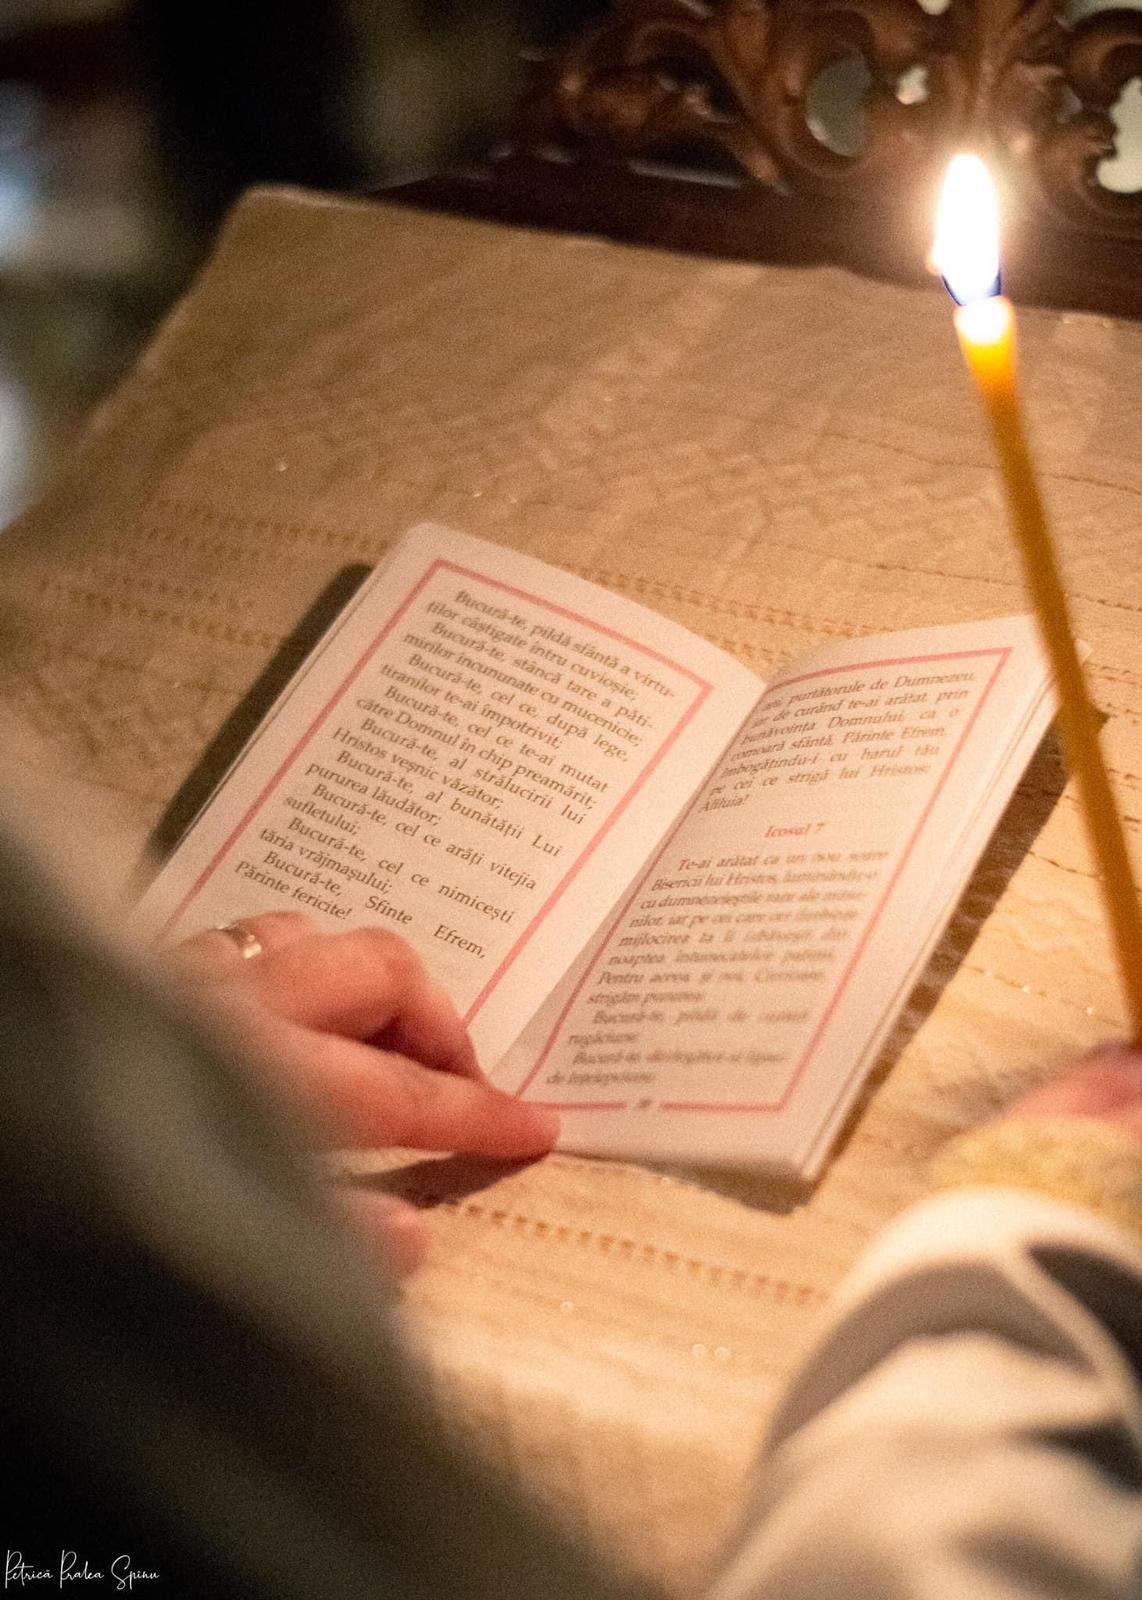 Bucură-te, pildă sfântă a virtu-
ților câștigate întru cuvioșie;
Bucură-te, stâncă tare a păti-
mirilor încununate cu mucenicie;
Bucură-te, cel ce, după lege,
tiranilor te-ai împotrivit;
Bucură-te, cel ce te-ai mutat
către Domnul în chip preamărit;
Bucură-te, al strălucirii lui
Hristos veșnic văzător;
Bucură-te, al bunătății Lui
pururea lăudător;
Bucură-te, cel ce arăți vitejia
sufletului;
Bucură-te, cel ce nimicești
tăria vrăjmașului;
Bucură-te, Sfinte Efrem,
Părinte fericite!
purtătorule de Dumnezeu,
iar de curând te-ai arătat, prin
bunăvoința Domnului, ca o
comoară sfântă, Părinte Efrem,
îmbogățindu-i cu harul tău
pe cei ce strigă lui Hristos:
Aliluia!
Icosul 7
Te-ai arătat ca un nou soare
Bisericii lui Hristos, luminându-o
cu dumnezeieștile raze ale minu-
nilor, iar pe cei care cer fierbinte
mijlocirea ta îi izbăvești din
noaptea întunecatelor patimi.
Pentru aceea, și noi, Cuvioase,
strigăm pururea:
Bucură-te, pildă de curată
rugăciune;
Bucură-te, dezlegător al lipsei
de înțelepciune;
Petrică Pralea Spînu